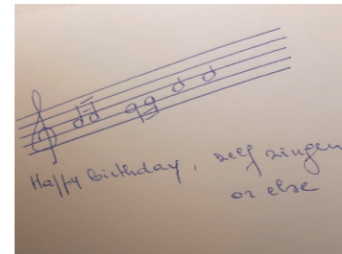 Happy birthday, self singen
or else